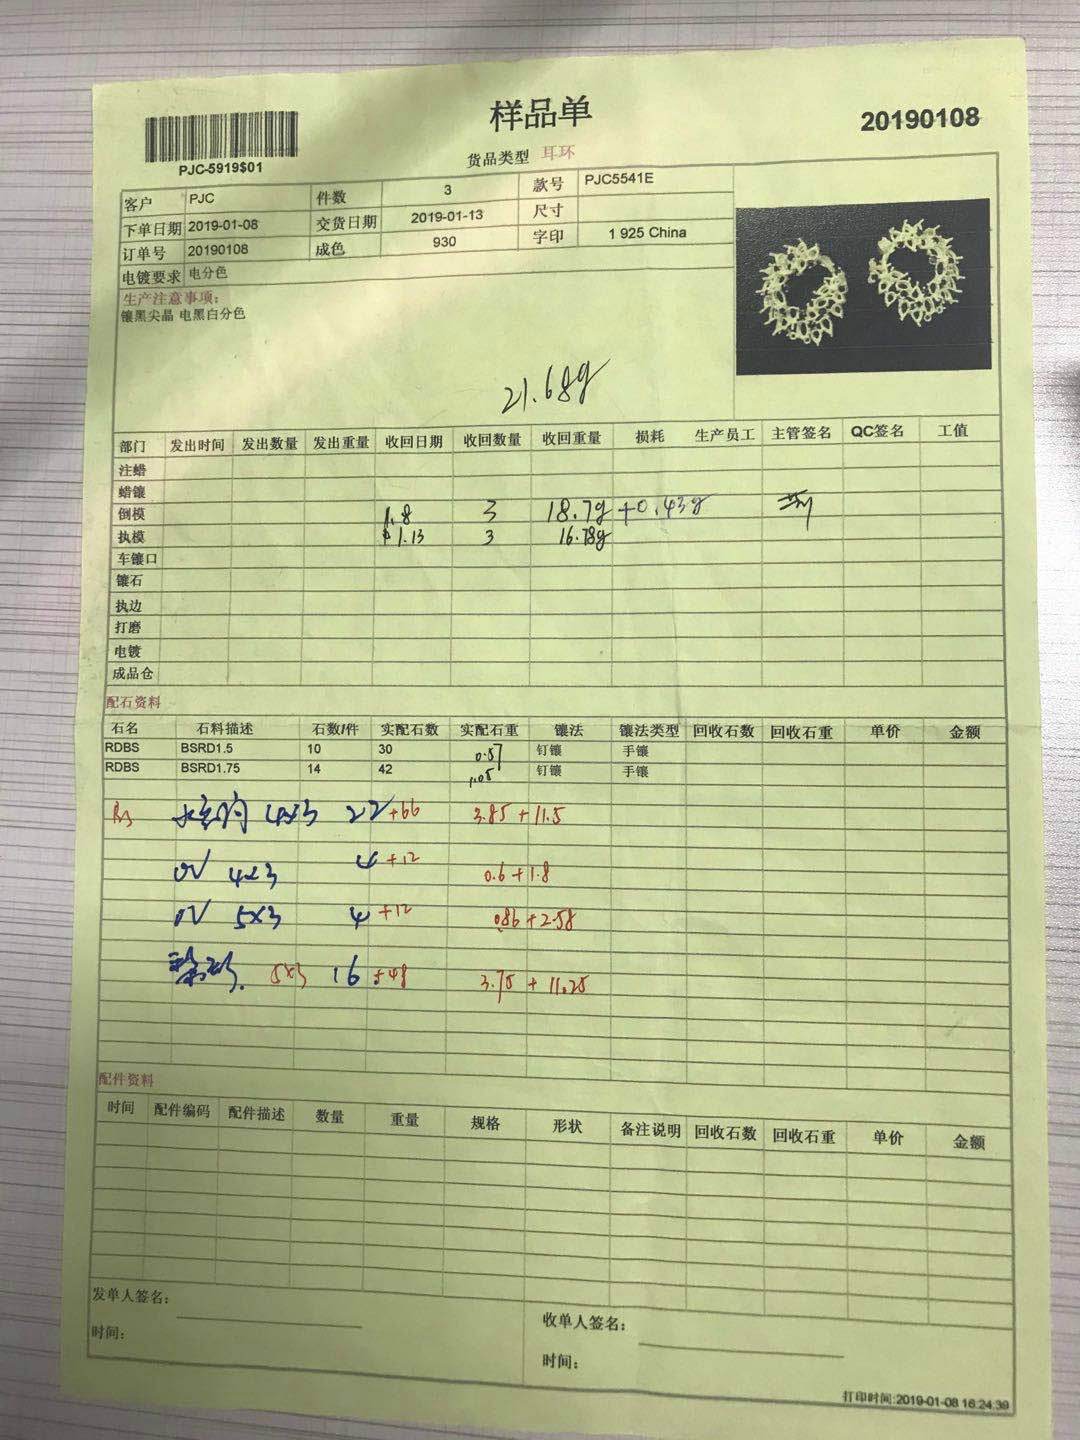 样品单
20190108
PJC-5919$01
货品类型 耳环
客户 PJC 件数 3 款号 PJC5541E
下单日期 2019-01-08 交货日期 2019-01-13 尺寸
订单号 20190108 成色 930 字印 1 925 China
电镀要求 电分色
生产注意事项:
镶黑尖晶 电黑白分色
21.68g
部门 发出时间 发出数量 发出重量 收回日期 收回数量 收回重量 损耗 生产员工 主管签名 QC签名 工值
注蜡
蜡镶
倒模 1.8 3 18.7g +0.43g
执模 1.13 3 16.78g
车镶口
镶石
执边
打磨
电镀
成品仓
配石资料
石名 石料描述 石数/件 实配石数 实配石重 镶法 镶法类型 回收石数 回收石重 单价 金额
RDBS BSRD1.5 10 30 0.57 钉镶 手镶
RDBS BSRD1.75 14 42 1.05 钉镶 手镶
4x3 22 +66 3.85 + 11.5
OV 4x3 4 +12 0.6 + 1.8
OV 5x3 4 +12 0.86 + 2.58
5x3 16 +48 3.75 + 11.25
配件资料
时间 配件编码 配件描述 数量 重量 规格 形状 备注说明 回收石数 回收石重 单价 金额
发单人签名:
收单人签名:
时间:
时间:
打印时间:2019-01-08 16:24:39